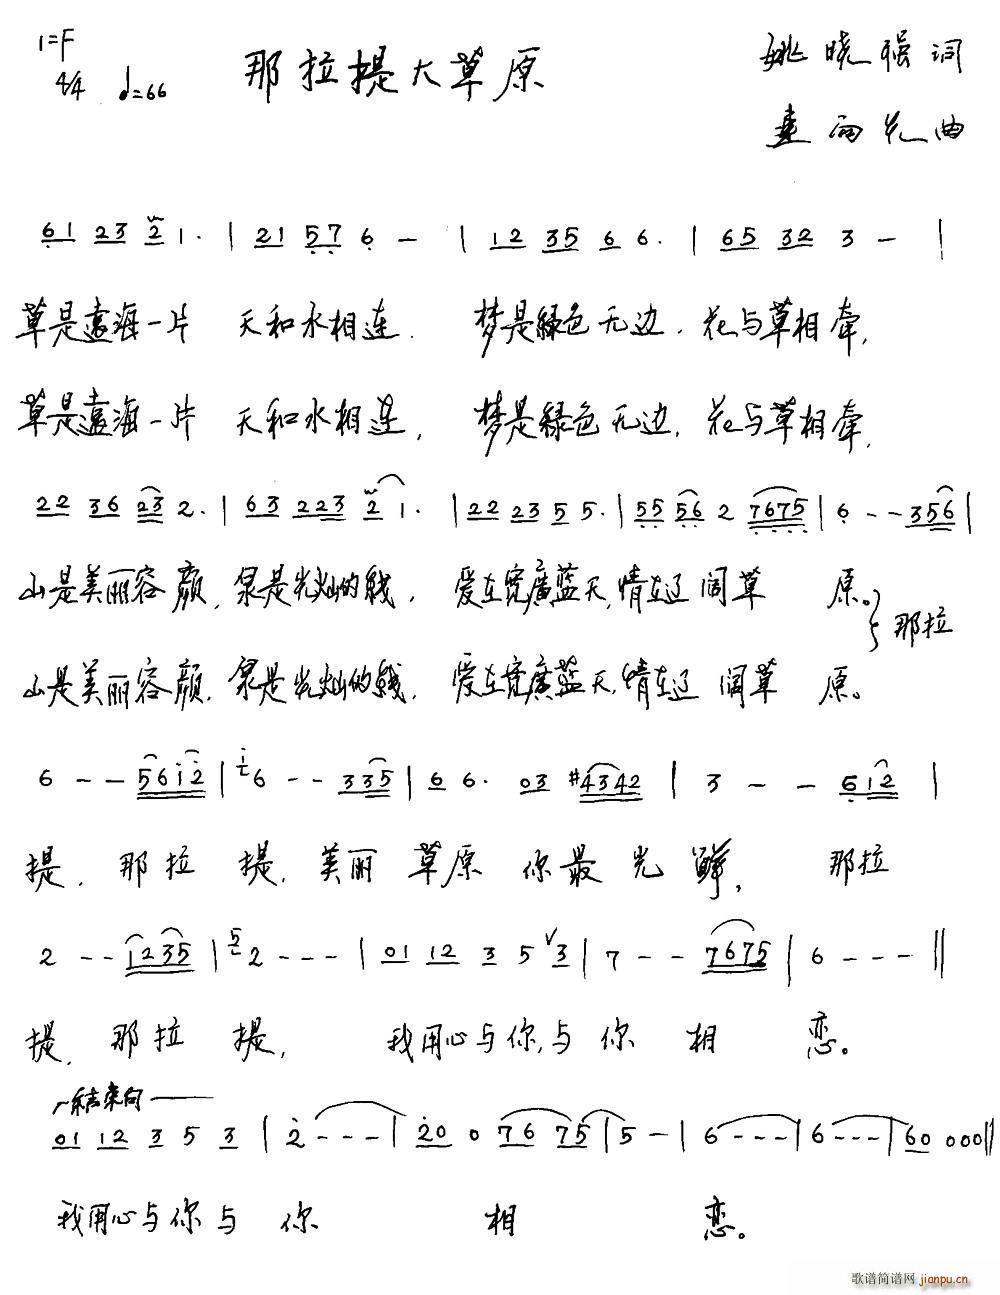 1=F
4/4 ♩=66 那拉提大草原 姚晓强词
曲
61 23 2 1. | 21 57 6 - | 12 35 6 6. | 65 32 3 - |
草是遠海一片 天和水相连. 梦是緑色无边. 花与草相牵,
草是遠海一片 天和水相连, 梦是緑色无边. 花与草相牵,
22 36 23 2. | 63 223 2 1. | 22 23 5 5. | 55 56 2 7675 | 6 - - 356 |
山是美丽容颜, 泉是光灿的线. 爱在宽廣蓝天,情在辽阔草 原。} 那拉
山是美丽容颜. 泉是光灿的线. 爱在宽廣蓝天,情在辽阔草 原。
6 - - 5612 | 1 6 - - 335 | 6 6. 03 #4342 | 3 - - 612 |
提, 那拉 提, 美丽 草原 你最 光 鲜, 那拉
2 - - 1235 | 5 2 - - - | 01 12 3 5 ∨3 | 7 - - 7675 | 6 - - - ‖
提, 那拉 提, 我用心与你,与 你 相 恋。
结束句
01 12 3 5 3 | 2 - - - | 20 0 76 75 | 5 - | 6 - - - | 6 - - - | 60 000 ‖
我用心与你与 你 相 恋。
歌谱简谱网 jianpu.cn